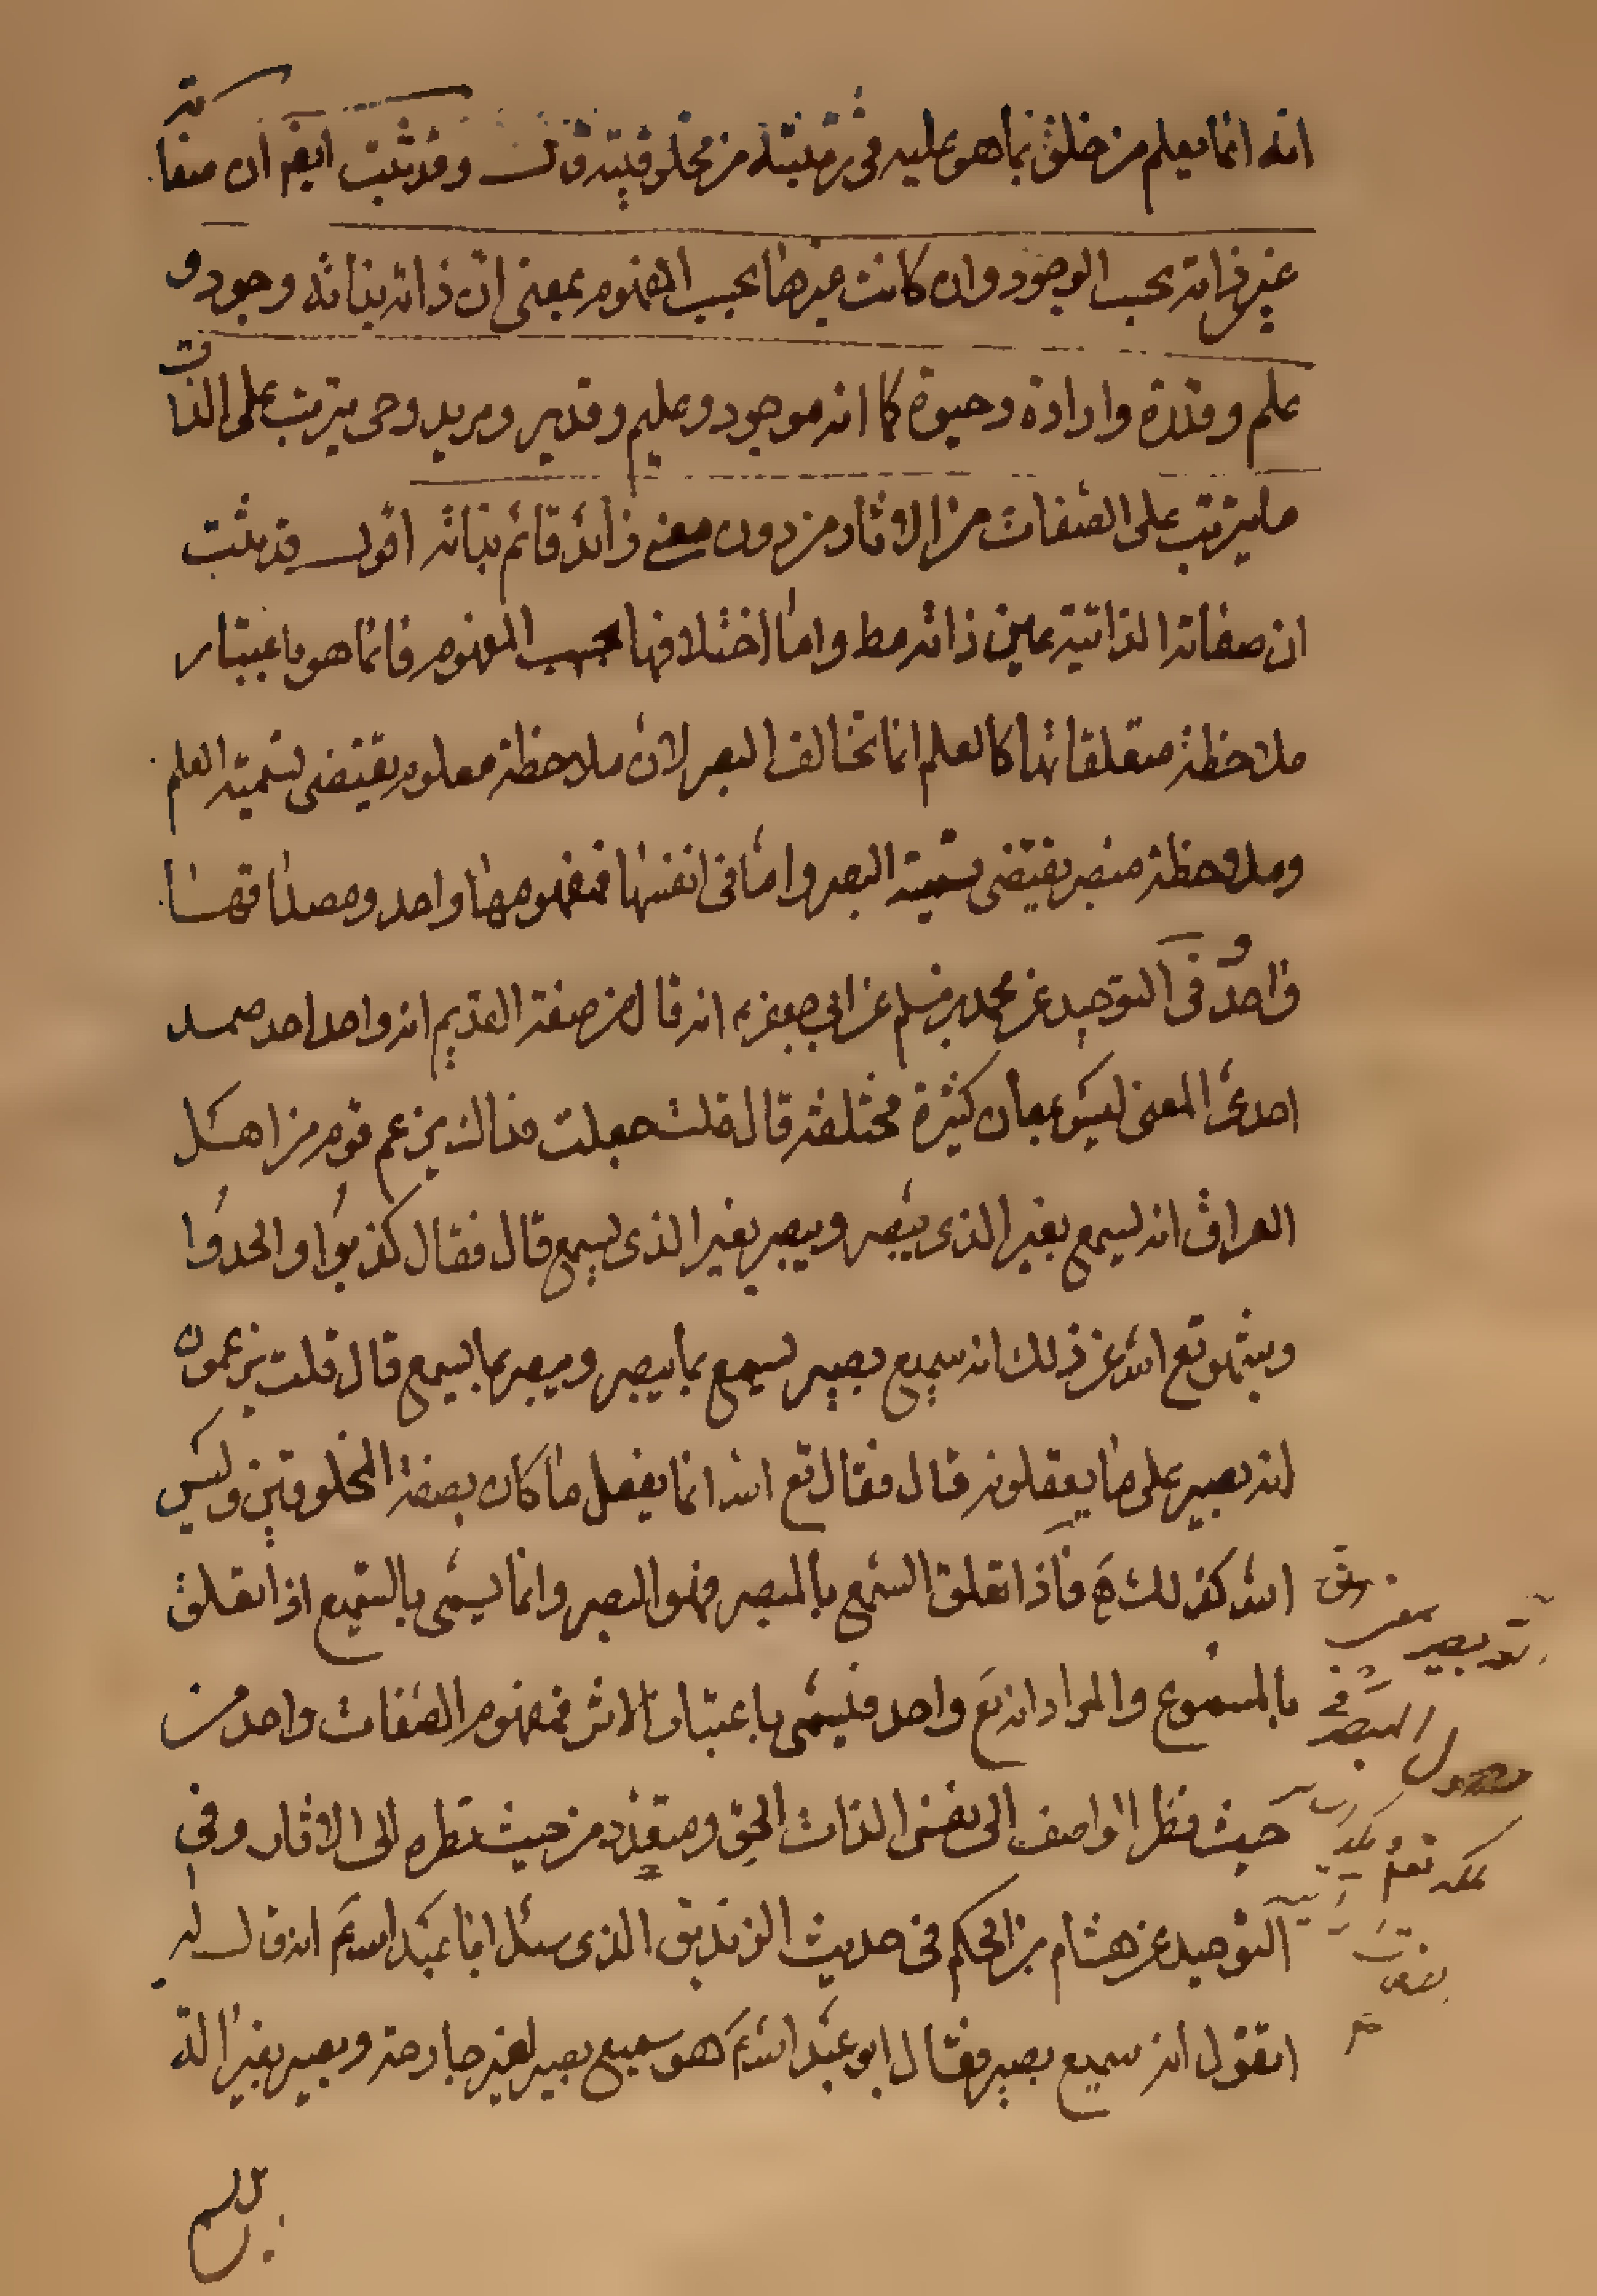 انه انما يعلم من خلق بما هو عليه فى رتبته من مخلوقيته قال وقد ثبت ايضا ان صفاته
عين ذاته بحسب الوجود وان كانت غيرها بحسب المفهوم بمعنى ان ذاته بذاته وجود و
علم وقدرة وارادة وحيوة كما انه موجود وعليم وقدير ومريد وحى يترتب على الذات
ما يترتب على الصفات من الاثار من دون معنى زائد قائم بذاته اقول قد ثبت
ان صفاته الذاتية عين ذاته مط واما اختلافها بحسب المفهوم فانما هو باعتبار
ملاحظة متعلقاتها كالعلم انما تخالف البصر لان ملاحظة معلوم يقتضى تسمية العلم
وملاحظة مبصر يقتضى تسمية البصر واما فى انفسها فمفهومها واحد ومصداقها
واحد وفى التوحيد عن محمد بن مسلم عن ابي جعفر ع انه قال من صفة القديم انه واحد احد صمد
احدى المعنى ليس بمعان كثيرة مختلفة قال قلت جعلت فداك يزعم قوم من اهل
العراق انه يسمع بغير الذى يبصر ويبصر بغير الذى يسمع قال فقال كذبوا والحدوا
وشبهوا تع الله عن ذلك انه سميع بصير يسمع بما يبصر ويبصر بما يسمع قال قلت يزعمون
انه بصير على ما يعقلونه قال فقال تع الله انما يعقل ما كان بصفة المخلوقين وليس
الله كذلك ه فاذا تعلق السمع بالمبصر فهو البصر وانما يسمى بالسميع اذا تعلق
بالمسموع والمراد انه تع واحد فيسمى باعتبار الاثر فمفهوم الصفات واحد من
حيث نظر الواصف الى نفس الذات الحق ومتعدد من حيث نظره الى الاثار وفى
التوحيد عن هشام بن الحكم فى حديث الزنديق الذى سئل ابا عبد الله ع انه قال له
اتقول انه سميع بصير فقال ابو عبد الله ع هو سميع بصير سميع بغير جارحة وبصير بغير الة